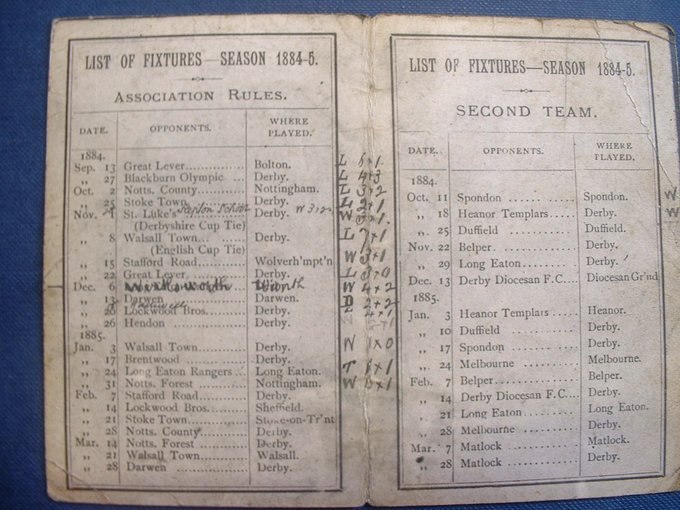 LIST OF FIXTURES—SEASON 1884-5.
ASSOCIATION RULES.
DATE. OPPONENTS. WHERE PLAYED.
1884.
Sep. 13 Great Lever............... Bolton. L 6 x 1
„ 27 Blackburn Olympic ... Derby. L 4 x 3
Oct. 2 Notts. County............ Nottingham. L 3 x 2
„ 25 Stoke Town............... Derby. L 2 x 1
Nov. St. Luke's Derby. W
(Derbyshire Cup Tie)
„ 8 Walsall Town... ...... Derby. L 7 x 1
(English Cup Tie)
„ 15 Stafford Road............ Wolverh'mpt'n W 3 x 1
„ 22 Great Lever............... Derby. L 3 x 0
Dec. 6 Wirksworth W 4 x 2
Darwen .................. Darwen. D 2 x 2
„ 20 Lockwood Bros.......... Derby.
„ 26 Hendon .................. Derby.
1885.
Jan. 3 Walsall Town............ Derby. W 1 x 0
„ 17 Brentwood ............... Derby.
„ 24 Long Eaton Rangers... Long Eaton. 1 x 1
„ 31 Notts. Forest ............ Nottingham. W
Feb. 7 Stafford Road............ Derby.
„ 14 Lockwood Bros.......... Sheffield.
„ 21 Stoke Town............... Stoke-on-Tr'nt
„ 28 Notts. County............ Derby.
Mar. 14 Notts. Forest ............ Derby.
„ 21 Walsall Town............ Walsall.
„ 28 Darwen .................. Derby.
LIST OF FIXTURES—SEASON 1884-5.
SECOND TEAM.
DATE. OPPONENTS. WHERE PLAYED.
1884.
Oct. 11 Spondon .................. Spondon. W
„ 18 Heanor Templars...... Derby.
„ 25 Duffield .................. Duffield.
Nov. 22 Belper..................... Derby.
„ 29 Long Eaton............... Derby.
Dec. 13 Derby Diocesan F.C.... Diocesan Gr'nd
1885.
Jan. 3 Heanor Templars...... Heanor.
„ 10 Duffield .................. Derby.
„ 17 Spondon .................. Derby.
„ 24 Melbourne ............... Melbourne.
Feb. 7 Belper..................... Belper.
„ 14 Derby Diocesan F.C.... Derby.
„ 21 Long Eaton ............... Long Eaton.
„ 28 Melbourne ............... Derby.
Mar. 7 Matlock .................. Matlock.
„ 28 Matlock .................. Derby.